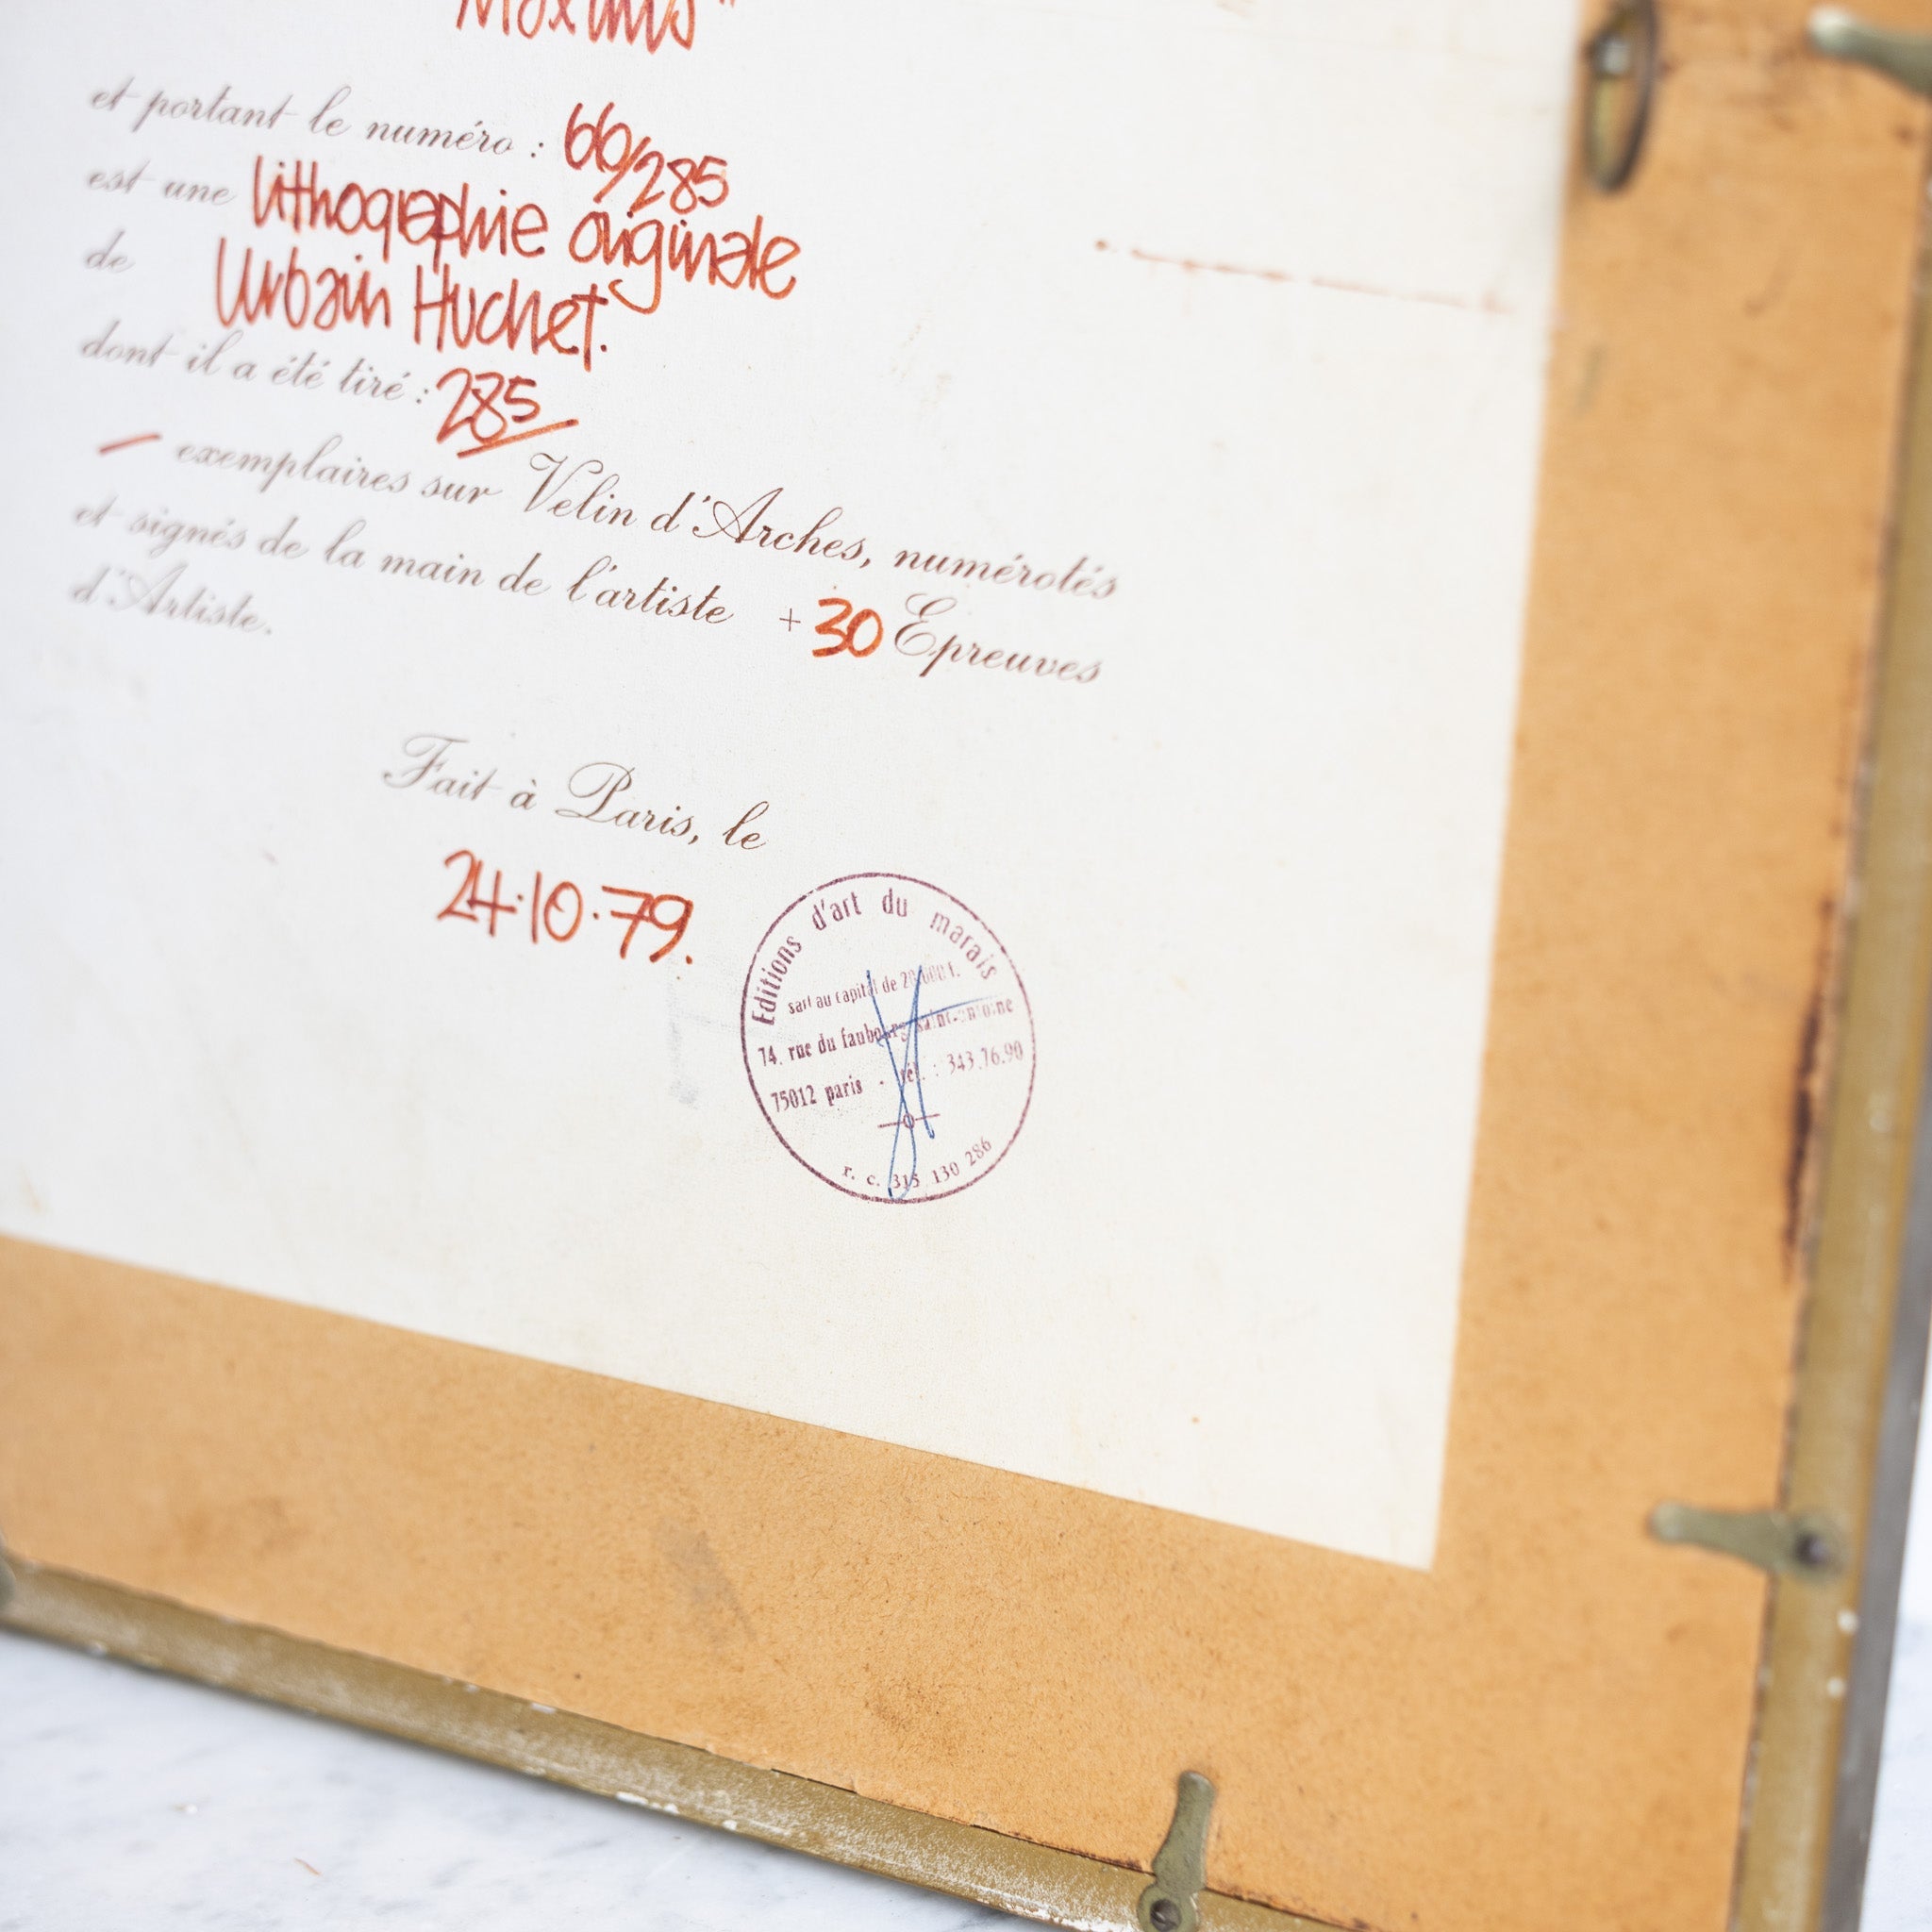 Maxims"
et portant le numéro : 66/285
est une lithographie originale
de Urbain Huchet.
dont il a été tiré : 285
exemplaires sur Velin d'Arches, numérotés
et signés de la main de l'artiste + 30 Epreuves
d'Artiste.
Fait à Paris, le
24.10.79.
Editions d'art du marais
sarl au capital de 20.000 f.
74. rue du faubourg saint-antoine
75012 paris - tél. : 343.76.90
r. c. 315 130 286